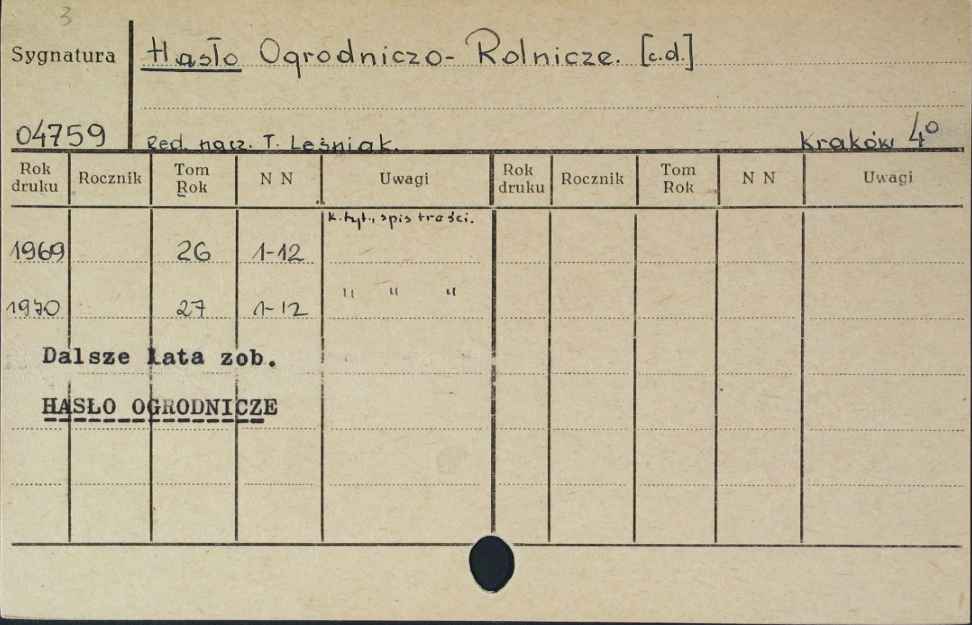 3
Sygnatura Hasło Ogrodniczo-Rolnicze. [c.d.]
04759 Red. nacz. T. Leśniak. Kraków 4º
Rok druku Rocznik Tom Rok N N Uwagi Rok druku Rocznik Tom Rok N N Uwagi
k. tyt., spis treści.
1969 26 1-12
1970 27 1-12 " " "
Dalsze lata zob.
HASŁO OGRODNICZE